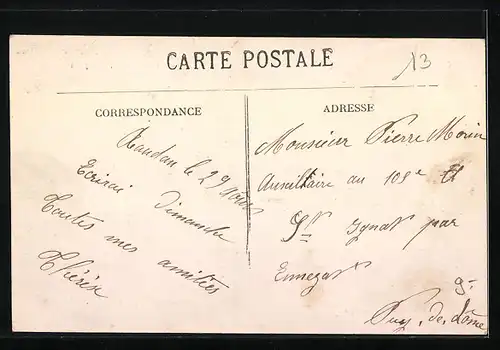 CARTE POSTALE
13
CORRESPONDANCE
ADRESSE
Randan le 29
Ecrirai Dimanche
Toutes mes amitiés
Thérèse
Monsieur Pierre Morin
Auxiliaire au 105e
St Ignat par
Ennezat
Puy. de. Dôme